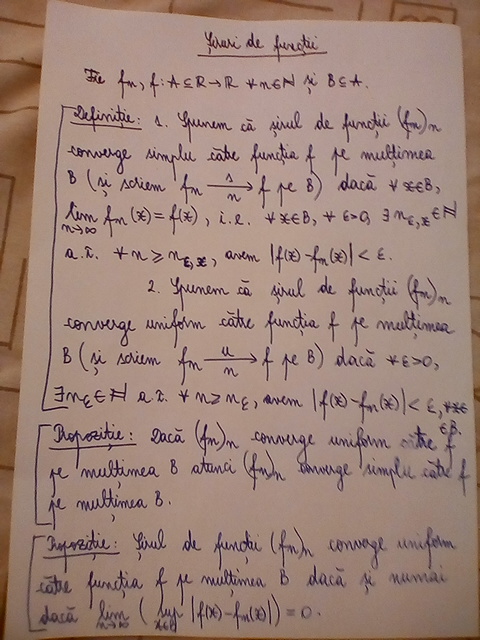 Șiruri de funcții
Fie fn, f: A⊆ℝ→ℝ ∀n∈ℕ și B⊆A.
Definiție: 1. Spunem că șirul de funcții (fn)n
converge simplu către funcția f pe mulțimea
B (și scriem fn —s/n→ f pe B) dacă ∀x∈B,
lim n→∞ fn(x)=f(x), i.e. ∀x∈B, ∀ε>0, ∃nε,x∈ℕ
a.î. ∀n≥nε,x, avem |f(x)-fn(x)|<ε.
2. Spunem că șirul de funcții (fn)n
converge uniform către funcția f pe mulțimea
B (și scriem fn —u/n→ f pe B) dacă ∀ε>0,
∃nε∈ℕ a.î. ∀n≥nε, avem |f(x)-fn(x)|<ε, ∀x∈
∈B.
Propoziție: Dacă (fn)n converge uniform către f
pe mulțimea B atunci (fn)n converge simplu către f
pe mulțimea B.
Propoziție: Șirul de funcții (fn)n converge uniform
către funcția f pe mulțimea B dacă și numai
dacă lim n→∞ ( sup x∈B |f(x)-fn(x)|)=0.